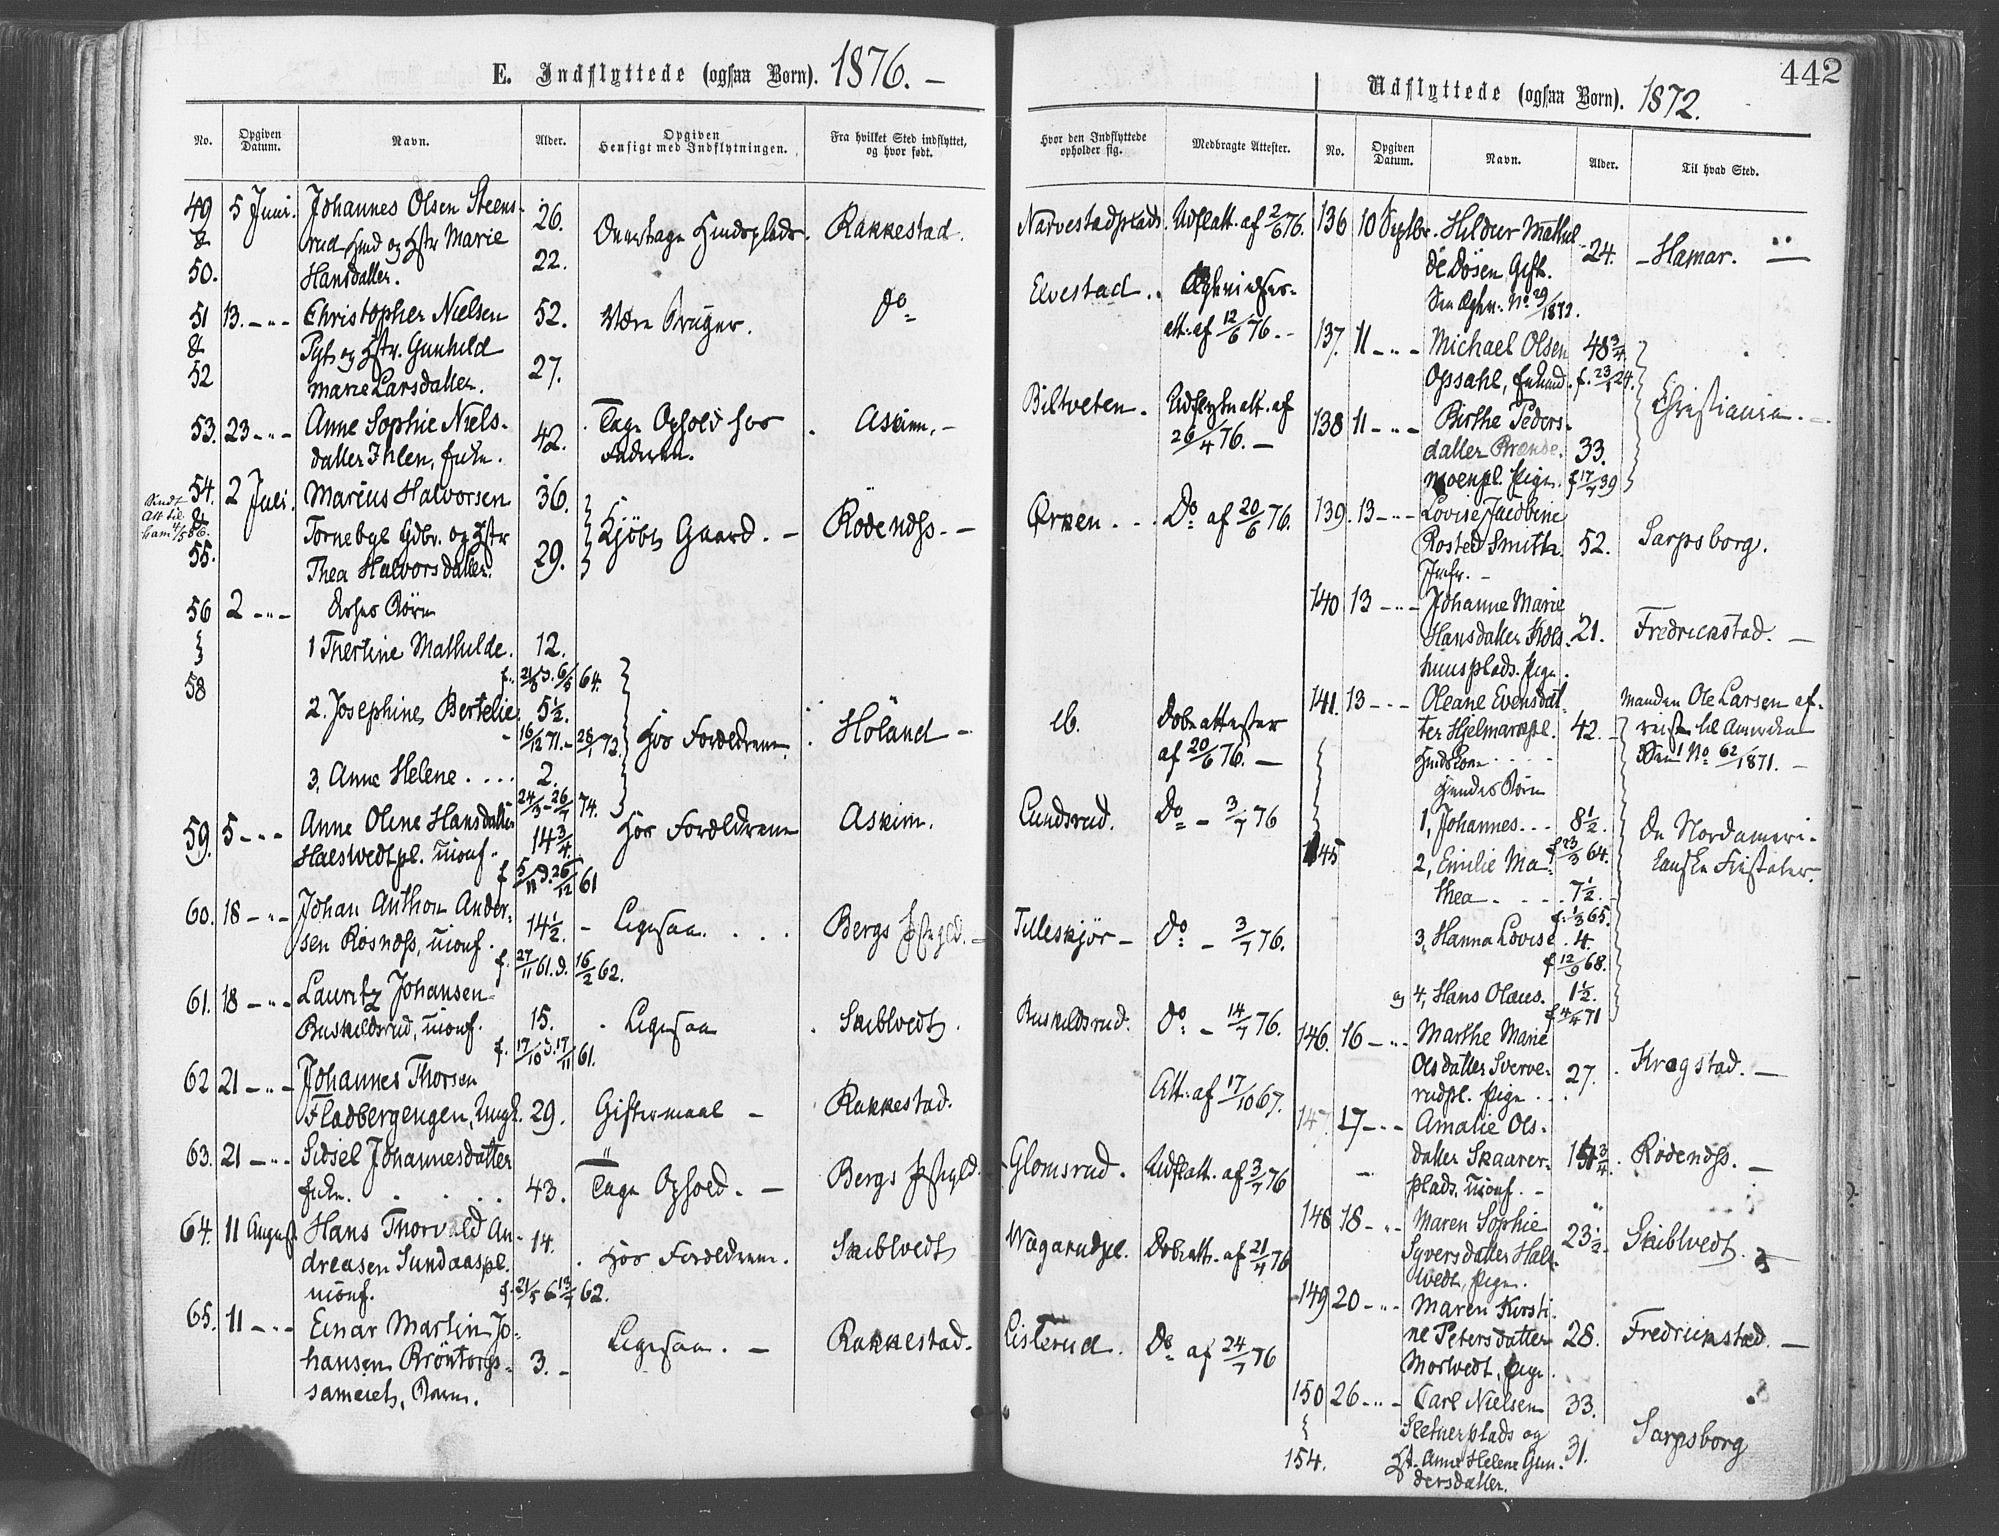 442
E. Indflyttede (ogsaa Børn). 1876. –
No. Opgiven Datum. Navn. Alder. Opgiven Hensigt med Indflytningen. Fra hvilket Sted indflyttet, og hvor født. Hvor den Indflyttede opholder sig. Medbragte Attester.
49 5 Juni. Johannes Olsen Steens- 26. Rakkestad. Narvestadplads. Udflatt. af 2/6 76.
& rud Hmd og Hstr Marie
50. Hansdatter. 22.
51 13. – „ – Christopher Nielsen 52. Være Bruger. Do Elvestad
& og Hstr. Gunhild att. af 12/6 76. –
52 Marie Larsdatter. 27.
53. 23 – „ – Anne Sophie Niels- 42. Tage Ophold hos Askim. – Biltveten. Udflytn att. af
datter Ihlen, Faderen. 26/4 76. –
54. 2 Juli. Marius Halvorsen 36. Kjøbt Gaard. – Rødenæss. – Ørken. Do af 20/6 76.
& Tornebye Gdbr. og Hstr
55. Thea Halvorsdatter. 29.
56 2 – „ – deres Børn
1 Thertine Mathilde. 12.
58 f. 21/3 D. 6/5 64.
2. Josephine Bertelie 5½. Hos Forældrene Høland – ib. Dobeattester
16/12 71. – 28/1 72. af 20/6 76. –
3, Anne Helene . . . . 2.
24/3 – 26/7 74.
59. 5 – „ – Anne Oline Hansdatter 14¾. Hos Forældrene Askim. Lundsrud. Do – 3/7 76
Haeswedtpl. uconf.
f 5/11 D. 26/12 61
60. 18 – „ – Johan Anthon Ander- 14½. – Ligesaa. . . . Bergs Pstgld. – Tilleskjør – Do – 3/7 76.
sen Rosnæss, uconf.
f. 27/11 61. D. 16/2 62.
61. 18 – „ – Lauritz Johansen 15. Ligesaa Skiblvedt. Buskildsrud. Do – 14/7 76.
Buskildsrud, uconf.
f. 17/10 D. 17/11 61.
62 21 – „ – Johannes Thorsen 29. Giftermaal – Rakkestad. Att. af 17/10 67.
Fladbergengen, Ungk.
63. 21 – „ – Sidsel Johannesdatter 43. Tage Ophold. – Bergs Pstgld. – Glomsrud. Udflatt. af 3/7 76
64. 11 August Hans Thorvald An- 14. Hos Forældrene. Skiblvedt Wagarudpl. Dobeatt. af 21/4 76
dreasen Sundaaspl.
uconf. f. 21/5 13/7 62.
65. 11 – „ – Einar Martin Jo- 3. – Ligesaa. – Rakkestad. Listerud. Do af 24/7 76
hansen Brøntorp-
sameiet, Barn.
Udflyttede (ogsaa Børn). 1872.
No. Opgiven Datum. Navn. Alder. Til hvad Sted.
136 10 Septbr. Hildur Mathil- 24. – Hamar.
de Døsen Gift.
No 29/1872.
137. 11 – „ – Michael Olsen 48¾. Christiania. –
Opsahl, f. 23/1 24.
138 11 – „ – Birthe Peders- 33.
datter Brænde-
moenpl. Pige. f 17/7 39
139. 13 – „ – Lovise Jacobine 52. Sarpsborg.
Rosted Smith.
Jmfr. –
140 13 – „ – Johanne Marie 21. Fredrickstad. –
Hansdatter Kols-
huusplads. Pige.
141. 13 – „ – Oleane Evensdat- 42. Manden Ole Larsen af-
ter Hjelmarkpl. reist til Amerika
Hmdskone . . . No 62/1871. –
hendes Børn
1, Johannes . . . 8½. De Nordameri-
145 f 23/3 64. kanske Fristater.
2, Emilie Ma-
thea . . . . 7½.
f. 1/3 65.
3, Hanna Lovise 4.
f 12/9 68.
og 4, Hans Olaus. 1½.
f 4/4 71
146. 16 – „ – Marthe Marie 27. Kragstad. –
Olsdatter Sverve-
rudpl. Pige
147. 17 – „ – Amalie Ols- Rødenæss. –
datter Skaarer-
plads. uconf. –
148 18 – „ – Maren Sophie 23½. Skiblvedt.
Syversdatter Hals-
vedt, Pige.
149 20 – „ – Maren Kirsti- 28. Fredrickstad. –
ne Petersdatter
Mortvedt, Pige.
150 26 – „ – Carl Nielsen 33. Sarpsborg
Sletnerplads og
154. Hst. Anne Helene Gun- 31.
dersdatter.